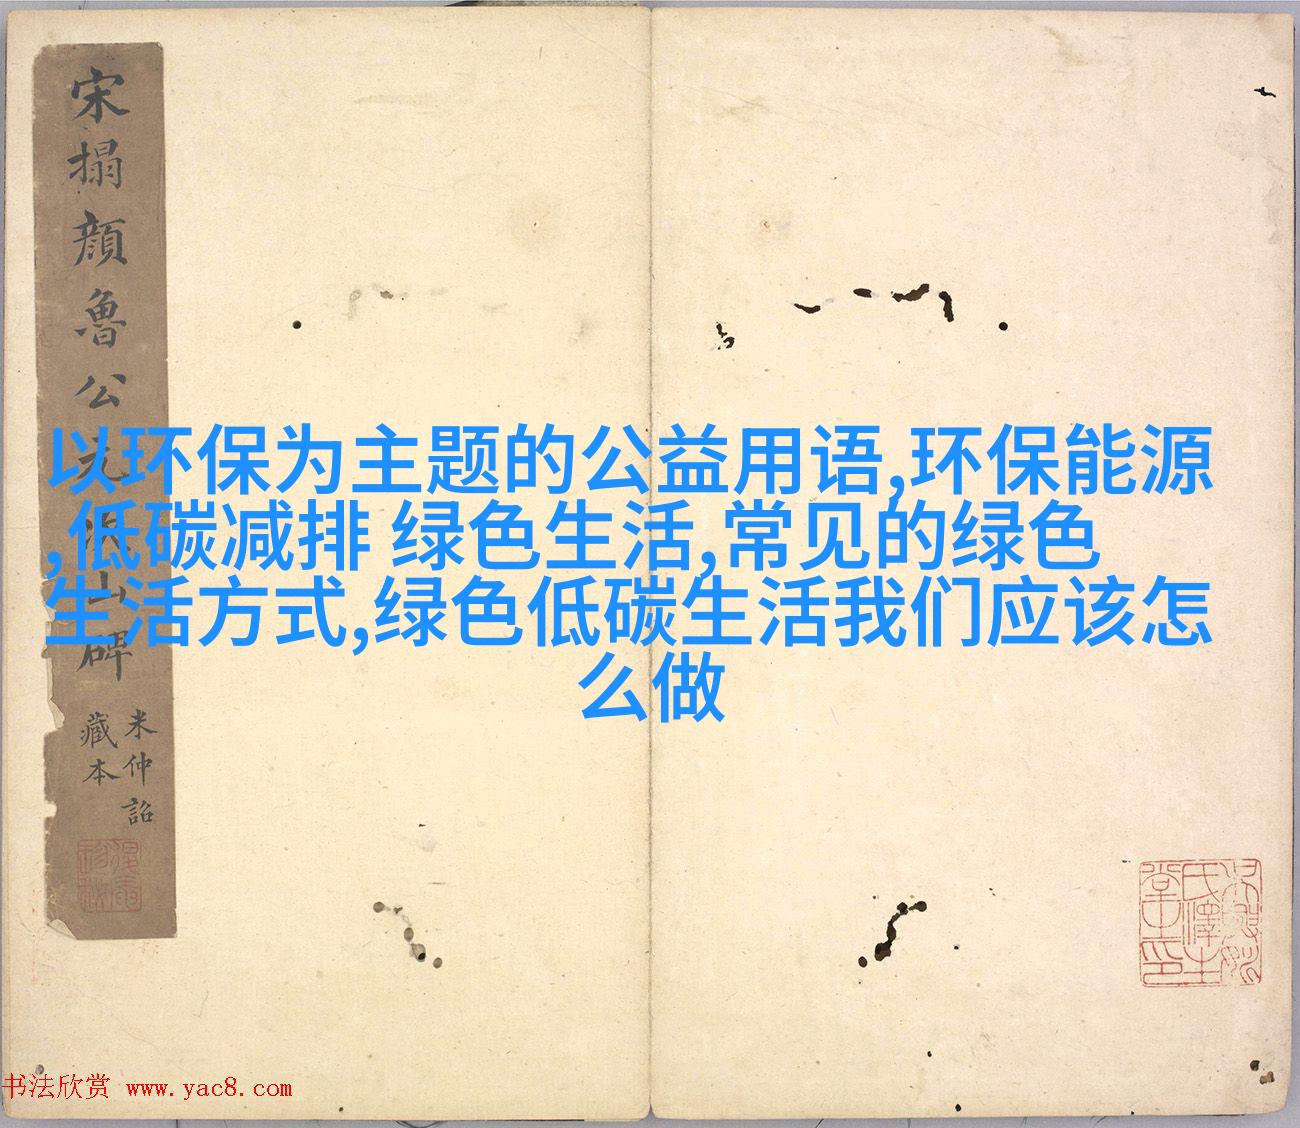 宋搨顔魯公元次山碑
米仲詔
藏本
以环保为主题的公益用语,环保能源
,低碳减排 绿色生活,常见的绿色
生活方式,绿色低碳生活我们应该怎
么做
书法欣赏 www.yac8.com